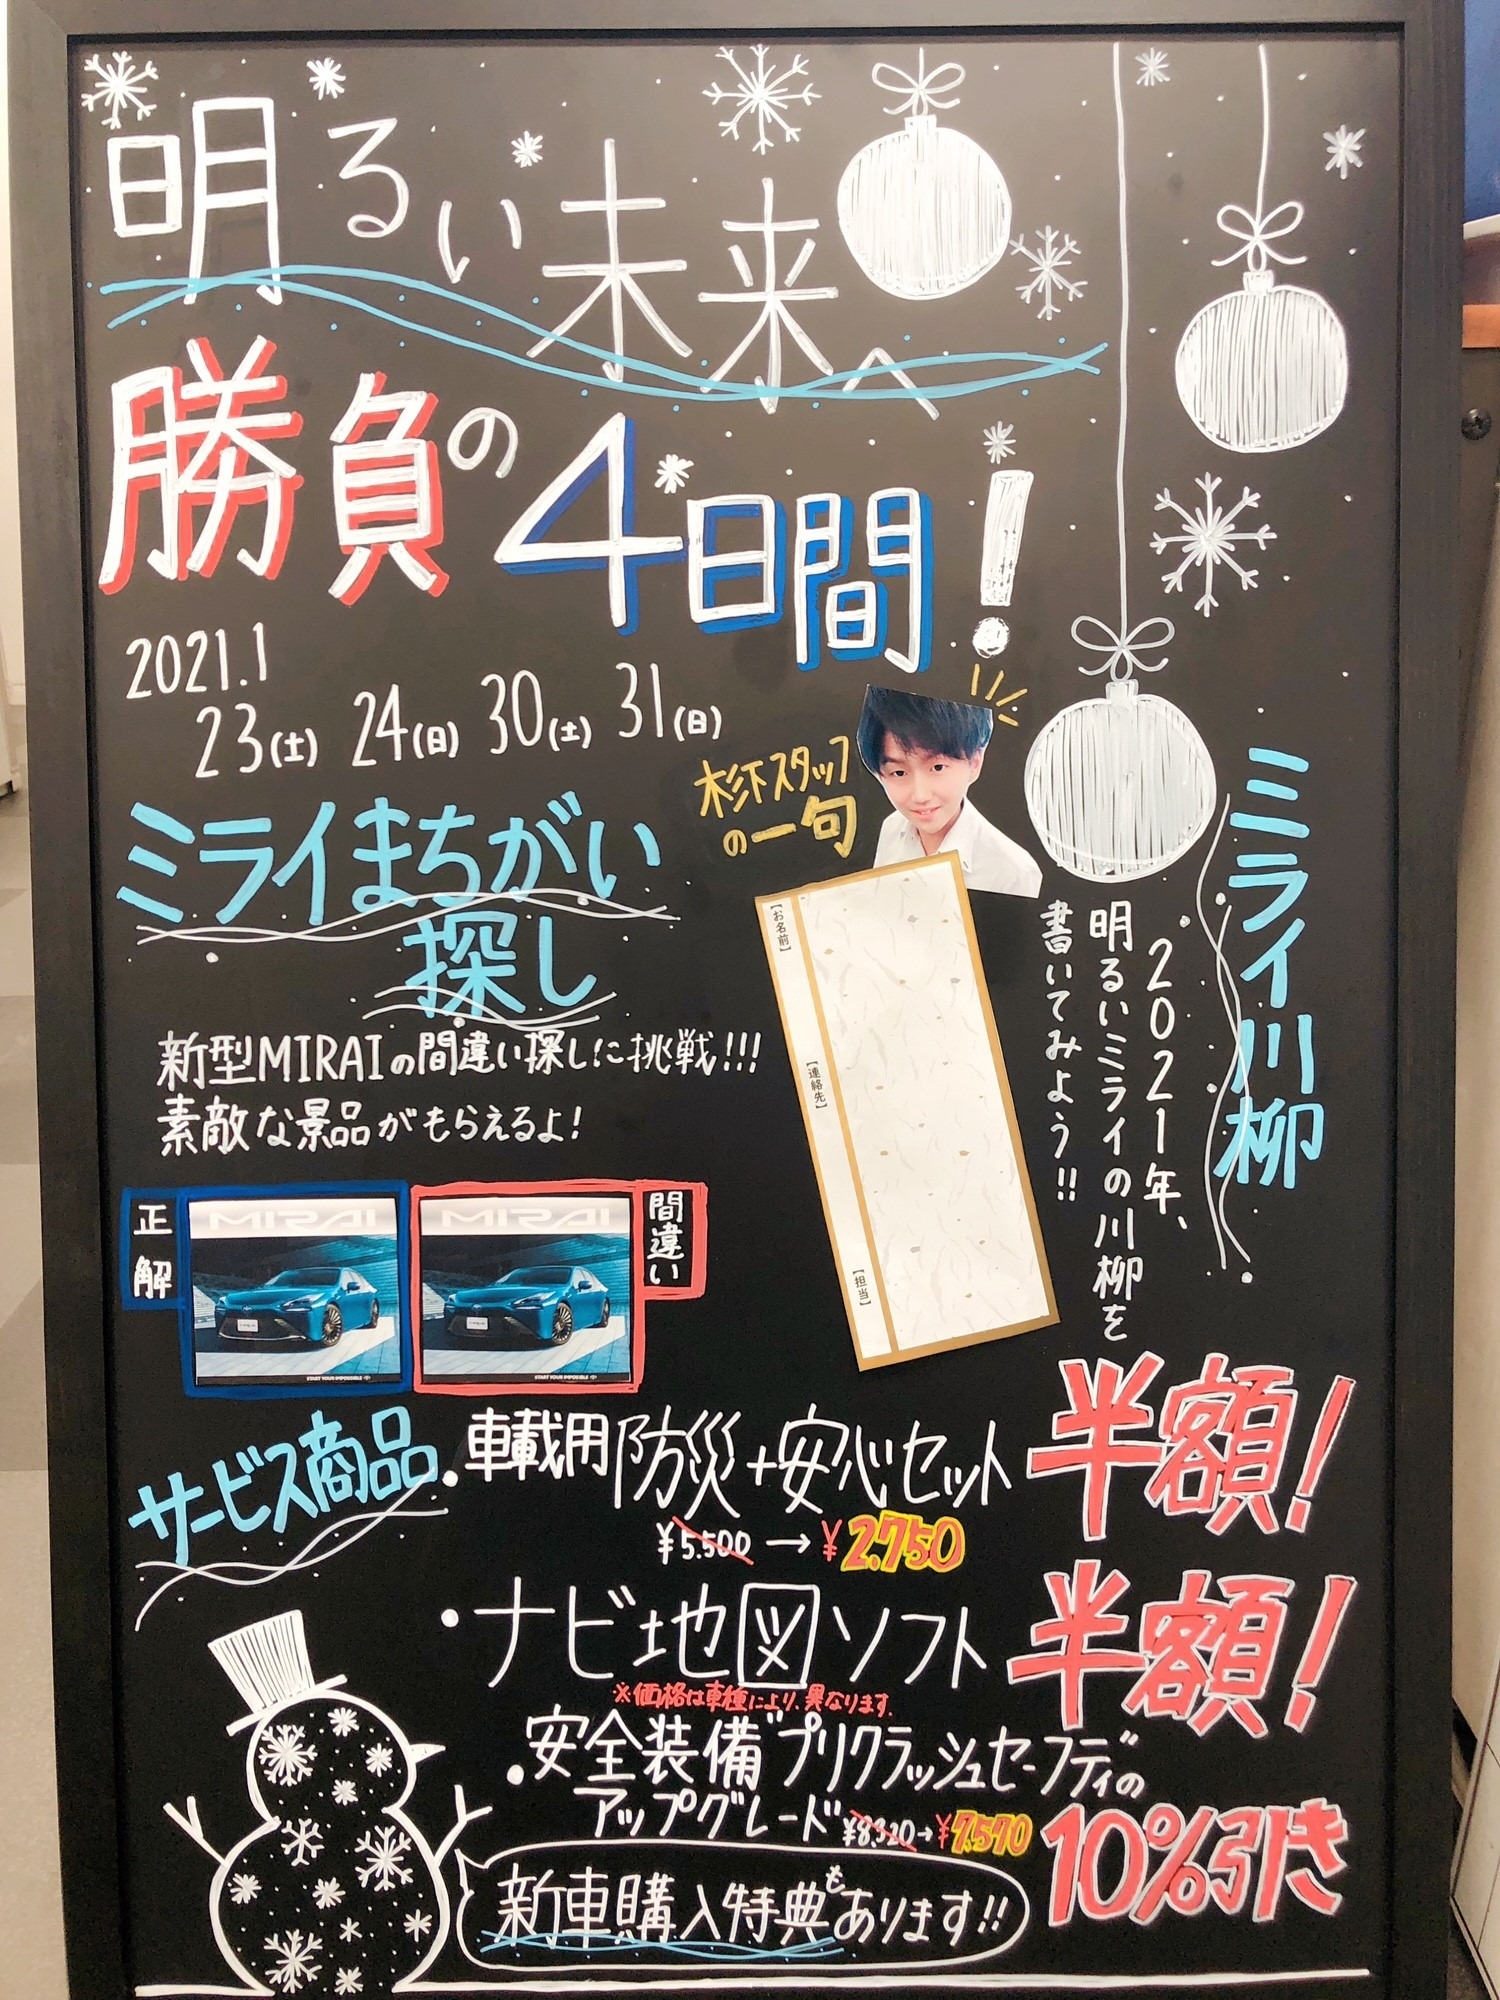 明るい未来へ
勝負の4日間!
2021.1
23(土) 24(日) 30(土) 31(日)
杉下スタッフ
の一句
【お名前】
【連絡先】
【担当】
ミライ川柳
2021年、
明るいミライの川柳を
書いてみよう!!
ミライまちがい
探し
新型MIRAIの間違い探しに挑戦!!!
素敵な景品がもらえるよ!
正解
MIRAI
START YOUR IMPOSSIBLE
間違い
MIRAI
START YOUR IMPOSSIBLE
サービス商品
・車載用防災+安心セット 半額!
¥5.500→¥2.750
・ナビ地図ソフト 半額!
※価格は車種により、異なります。
・安全装備"プリクラッシュセーフティ"の
アップグレード ¥8.320→¥7.570 10%引き
新車購入特典もあります!!